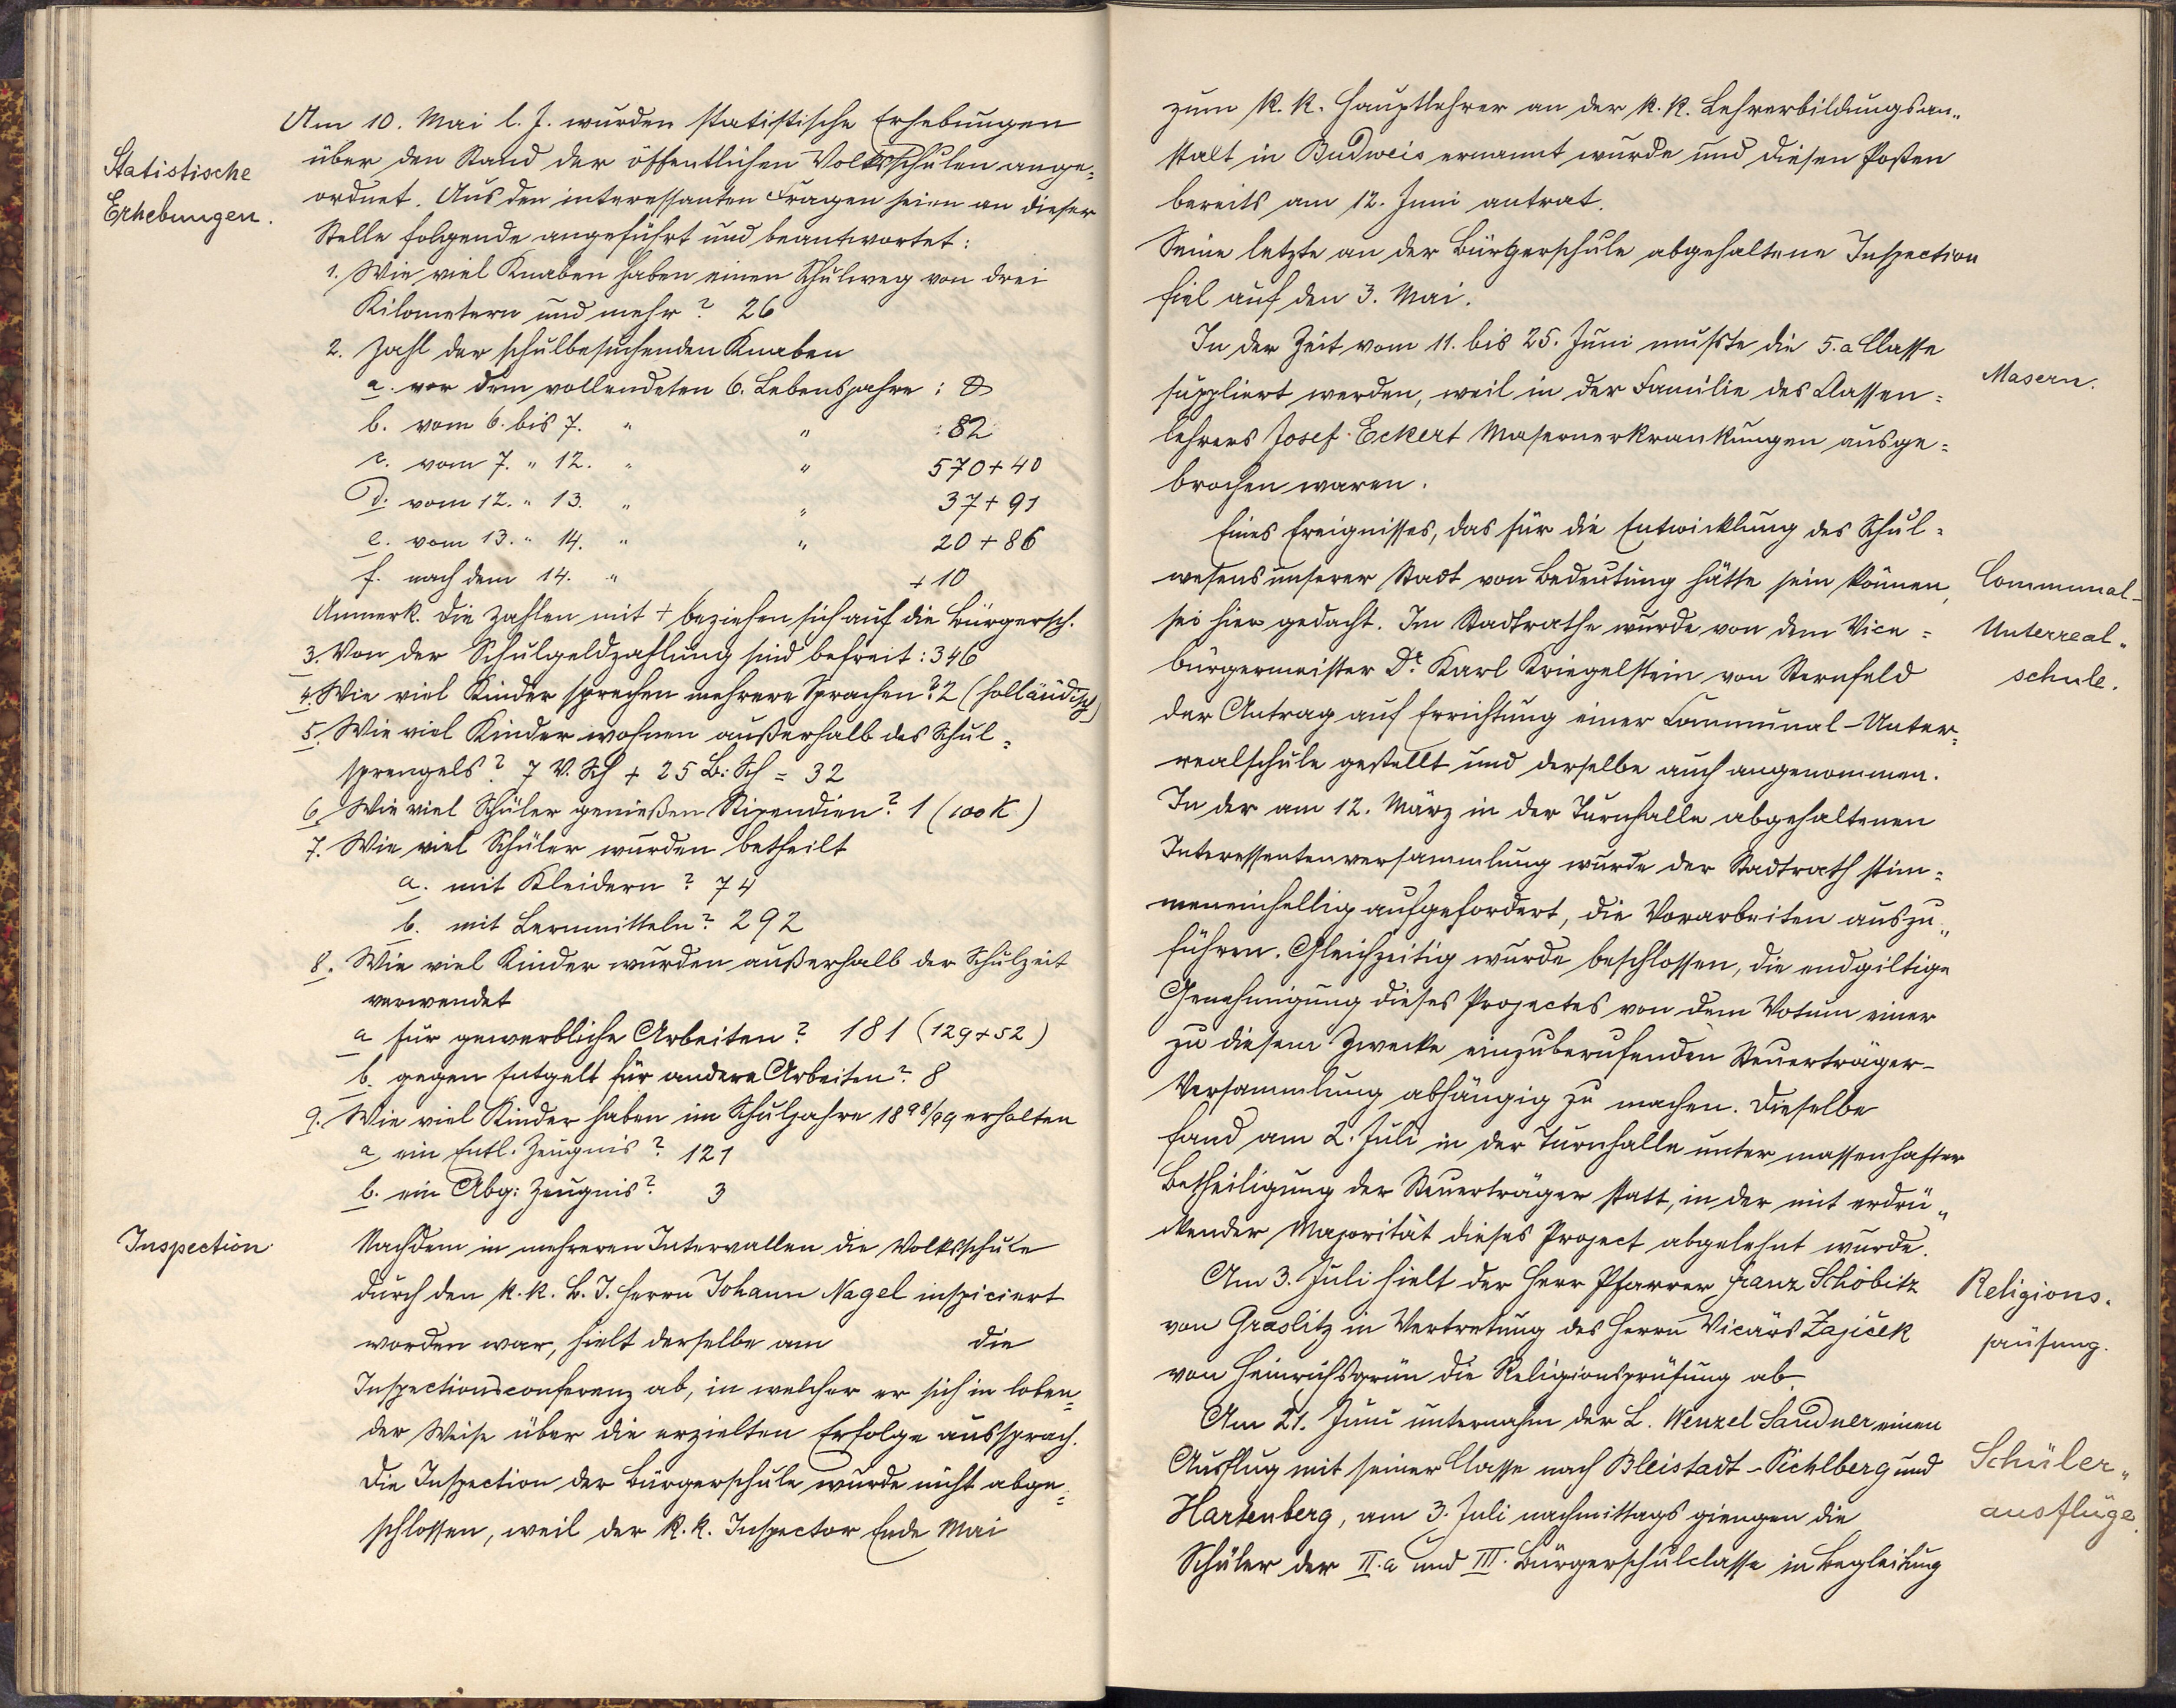 Am 10. Mai l. J. wurden statistische Erhebungen
Statistische
Erhebungen.
über den Stand der öffentlichen Volksschulen ange=
ordnet. Aus den interessanten Fragen seien an dieser
Stelle folgende angeführt und beantwortet:
1. Wie viel Knaben haben einen Schulweg von drei
Kilometern und mehr? 26
2. Zahl der schulbesuchenden Knaben
a. vor dem vollendeten 6. Lebensjahre : 0
b. vom 6. bis 7. " " : 82
c. vom 7. " 12. " " 570+40
d. vom 12. " 13. " " 37+91
e. vom 13. " 14. " " 20+86
f. nach dem 14. " +10
Anmerk. Die Zahlen mit + beziehen sich auf die Bürgersch.
3. Von der Schulgeldzahlung sind befreit: 346
4. Wie viel Kinder sprechen mehrere Sprachen? 2 (holländisch)
5. Wie viel Kinder wohnen außerhalb des Schul=
sprengels? 7 V. Sch + 25 B: Sch = 32
6. Wie viel Schüler genießen Stipendien? 1 (100 K)
7. Wie viel Schüler wurden betheilt
a. mit Kleidern? 74
b. mit Lernmitteln? 292
8. Wie viel Kinder wurden außerhalb der Schulzeit
verwendet
a für gewerbliche Arbeiten? 181 (129+52)
b. gegen Entgelt für andere Arbeiten? 8
9. Wie viel Kinder haben im Schuljahre 1898/99 erhalten
a, ein Entl. Zeugnis? 121
b. ein Abg: Zeugnis? 3
Inspection
Nachdem in mehreren Intervallen die Volksschule
durch den k. k. B. J. Herrn Johann Nagel inspiciert
worden war, hielt derselbe am die
Inspectionsconferenz ab, in welcher er sich in loben=
der Weise über die erzielten Erfolge aussprach.
Die Inspection der Bürgerschule wurde nicht abge=
schlossen, weil der k. k. Inspector Ende Mai
zum k. k. Hauptlehrer an der k. k. Lehrerbildungsan"
stalt in Budweis ernannt wurde und diesen Posten
bereits am 12. Juni antrat.
Seine letzte an der Bürgerschule abgehaltene Inspection
fiel auf den 3. Mai.
In der Zeit vom 11. bis 25. Juni mußte die 5. a Classe
Masern.
suppliert werden, weil in der Familie des Classen=
lehrers Josef Eckert Masernerkrankungen ausge=
brochen waren.
Eines Ereignisses, das für die Entwicklung des Schul=
wesens unserer Stadt von Bedeutung hätte sein können,
Communal-
Unterreal"
schule.
sei hier gedacht. Im Stadtrathe wurde von dem Vice=
bürgermeister Dr. Karl Kriegelstein von Sternfeld
der Antrag auf Errichtung einer Communal-Unter=
realschule gestellt und derselbe auch angenommen.
In der am 12. März in der Turnhalle abgehaltenen
Interessentenversammlung wurde der Stadtrath stim=
meneinhellig aufgefordert, die Vorarbeiten auszu"
führen. Gleichzeitig wurde beschlossen, die endgiltige
Genehmigung dieses Projectes von dem Votum einer
zu diesem Zwecke einzuberufenden Steuerträger-
Versammlung abhängig zu machen. Dieselbe
fand am 2. Juli in der Turnhalle unter massenhafter
Betheiligung der Steuerträger statt, in der mit erdrü"
ckender Majorität dieses Project abgelehnt wurde.
Am 3. Juli hielt der Herr Pfarrer Franz Schöbitz
Religions.
prüfung.
von Graslitz in Vertretung des Herrn Vicärs Zajíček
von Heinrichsgrün die Religionsprüfung ab.
Am 21. Juni unternahm der L. Wenzel Sandner einen
Schüler"
ausflüge.
Ausflug mit seiner Classe nach Bleistadt-Pichlberg und
Hartenberg, am 3. Juli nachmittags giengen die
Schüler der II. a und III. Bürgerschulclasse in Begleitung